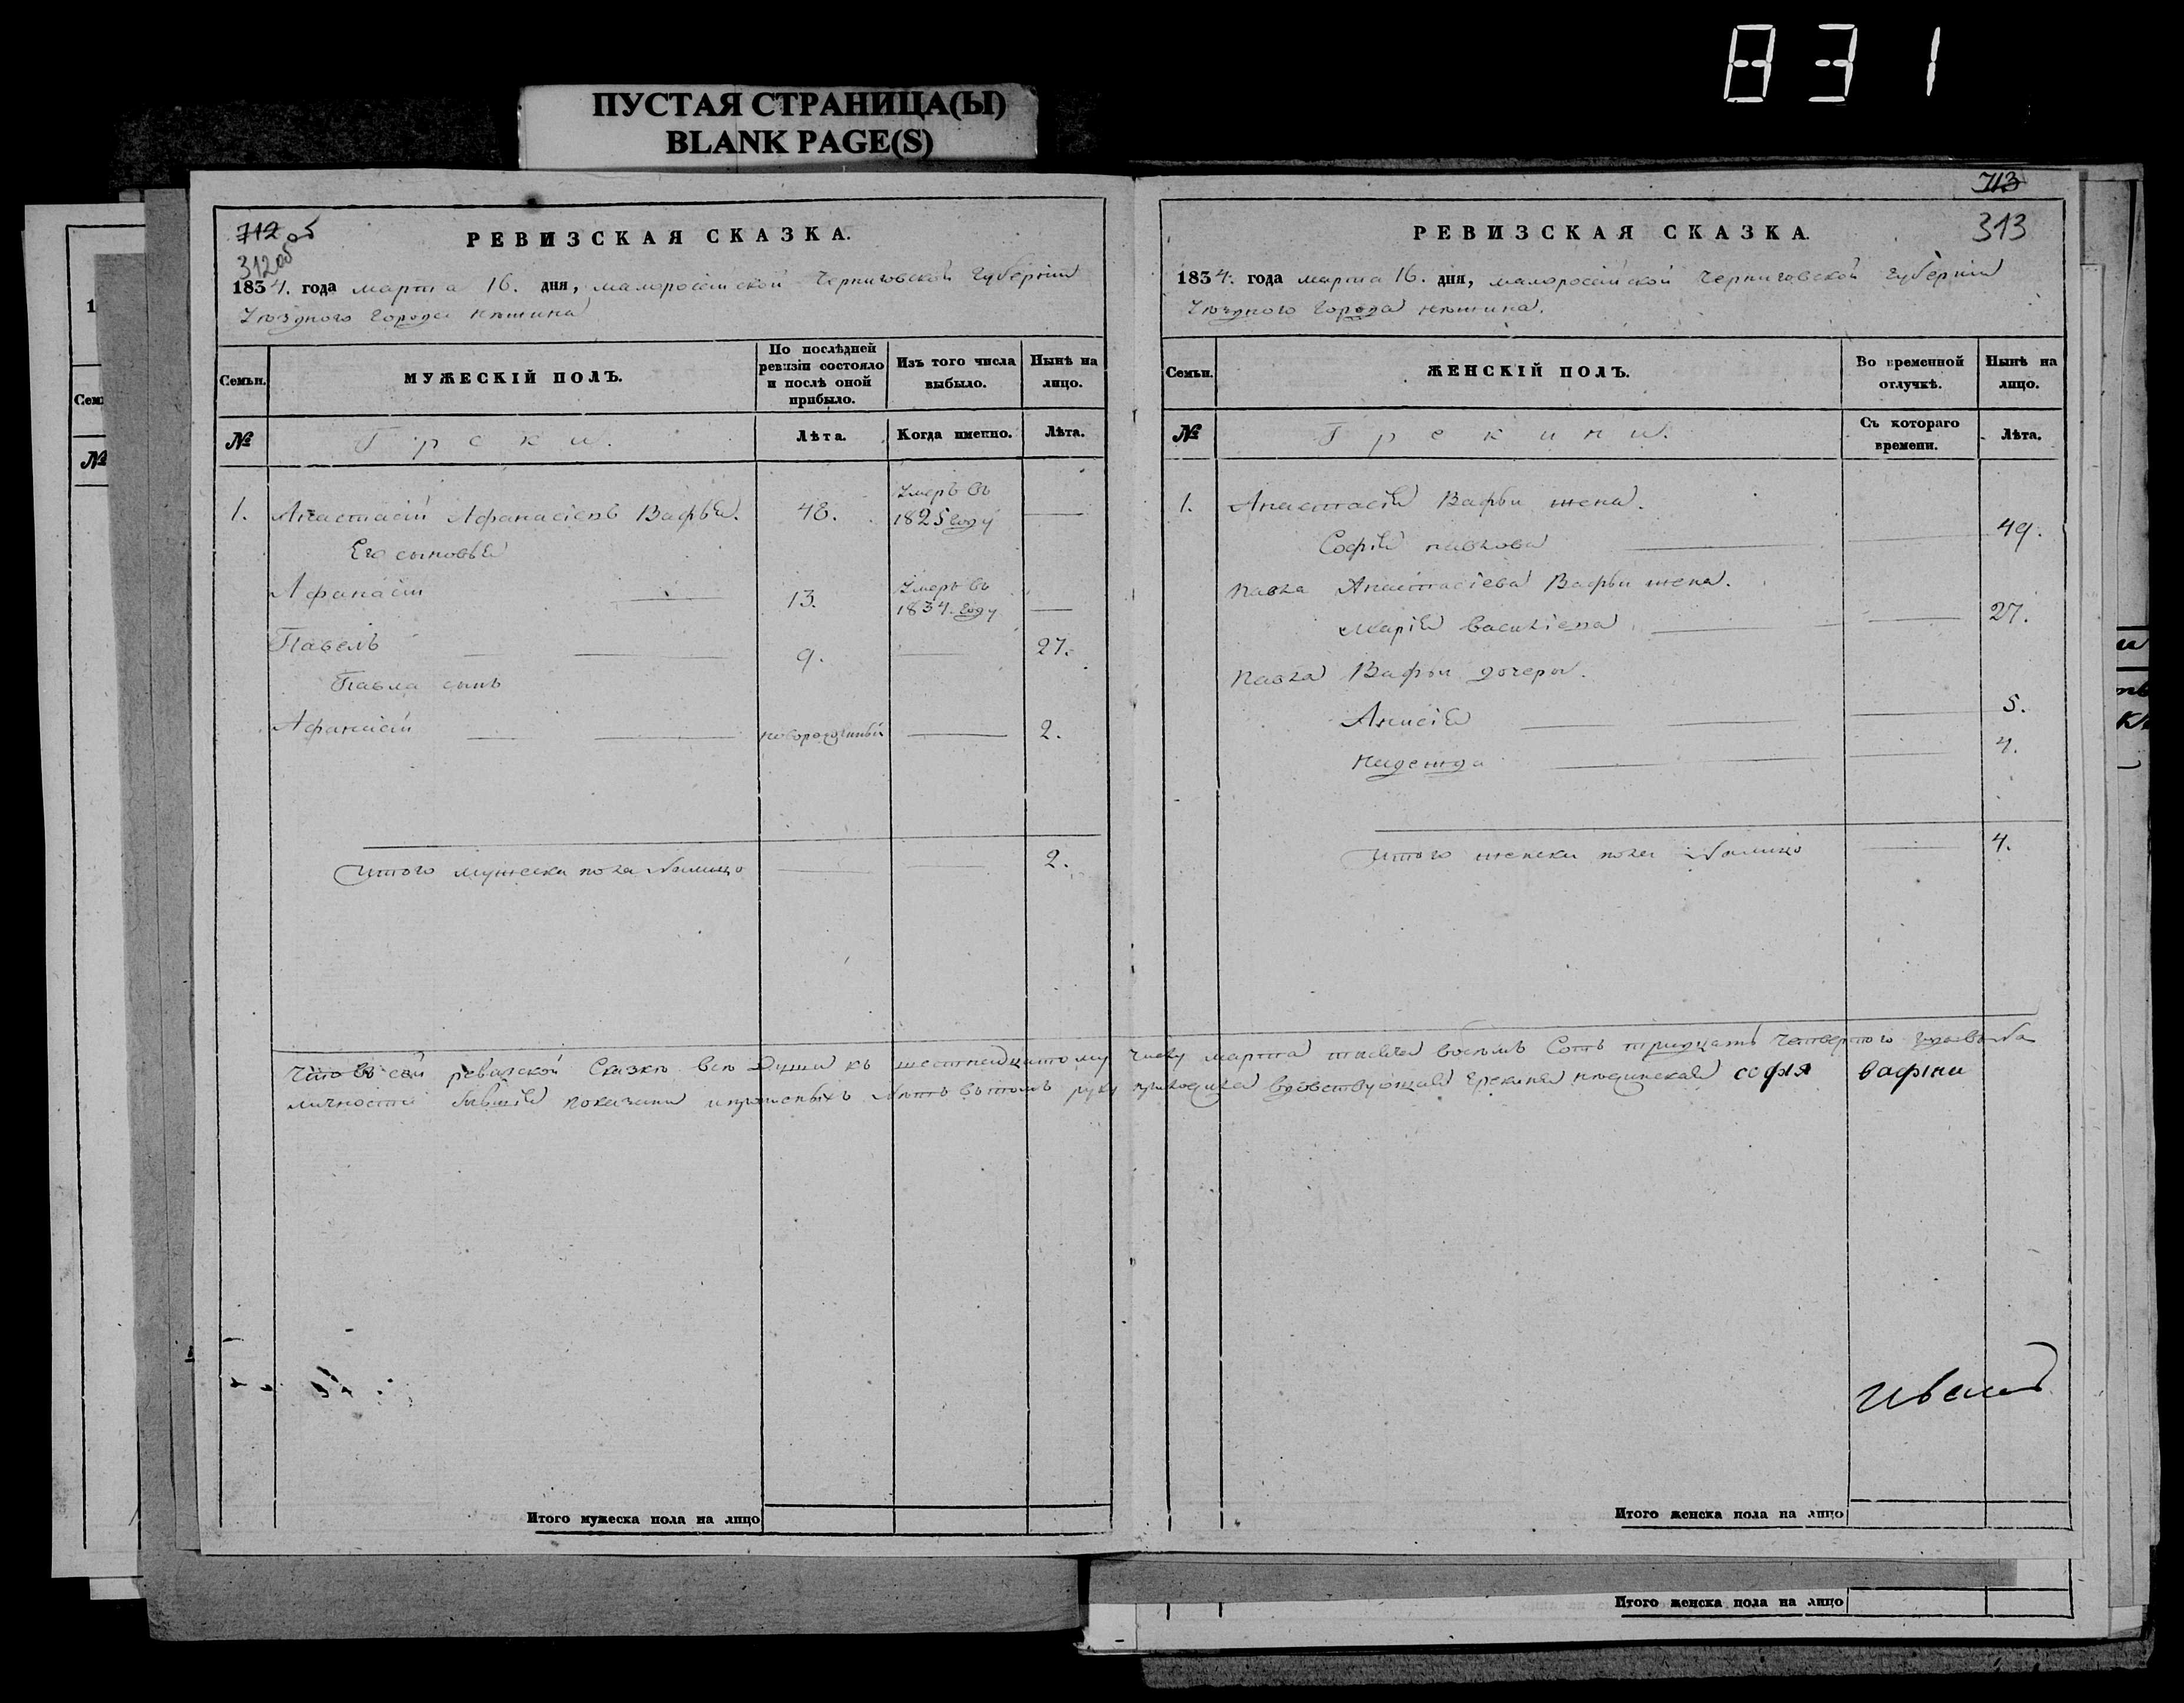 831
ПУСТАЯ СТРАНИЦА(Ы)
BLANK PAGE(S)
712 об
312 об
РЕВИЗСКАЯ СКАЗКА.
1834. года марта 16. дня, малоросійской Черниговской губерніи
уѣзднаго города нѣжина
Семьи.
МУЖЕСКІЙ ПОЛЪ.
По послѣдней ревизіи состояло и послѣ оной прибыло.
Изъ того числа выбыло.
Нынѣ на лицо.
№
Греки.
Лѣта.
Когда именно.
Лѣта.
1. Анастасій Афанасіевъ Вафья. 48. умеръ въ 1825 году
Его сыновья
Афанасій 13. умеръ въ 1834. году
Павелъ 9. 27.
Павла сынъ
Афанасій новорожденный 2.
Итого мужеска пола налицо 2.
Итого мужеска пола на лицо
713
313
РЕВИЗСКАЯ СКАЗКА.
1834. года марта 16. дня, малоросійской Черниговской губерніи
уѣзднаго города нѣжина.
Семьи.
ЖЕНСКІЙ ПОЛЪ.
Во временной отлучкѣ.
Нынѣ на лицо.
№
Грекини.
Съ котораго времени.
Лѣта.
1. Анастасія Вафьи жена.
Софія павлова 49.
павла Анастасіева Вафьи жена.
Марія василіева 27.
павла Вафьи дочери.
Анисія 5.
надежда 4.
Итого женска пола налицо 4.
Что въ сей ревизской Сказкѣ всѣ Души къ шестнадцатому числу марта тысяча восемь Сотъ тридцать четвертого
личности показаны вътомъ руку вдовствующая грекиня нѣжинская софія вафіи
Итого женска пола на лицо
Итого женска пола на лицо